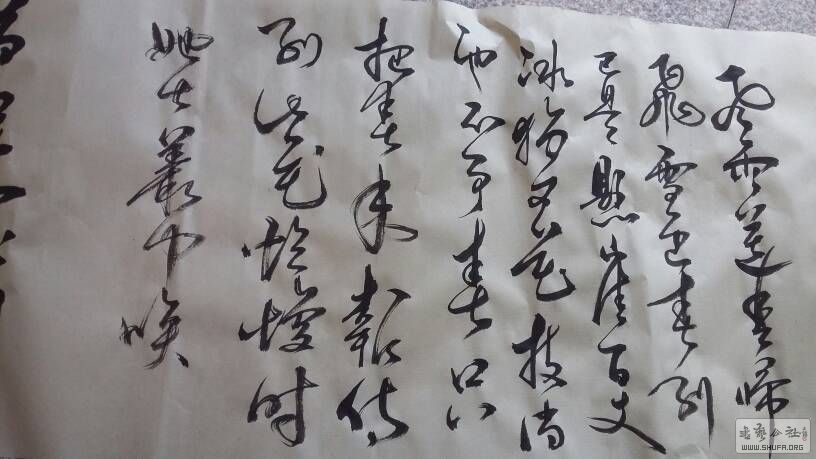 风雨送春归
飛雪迎春到
已是懸崖百丈
冰犹有花枝俏
也不争春只
把春来報待
到山花烂熳时
她在叢中咲
书艺公社
WWW.SHUFA.ORG